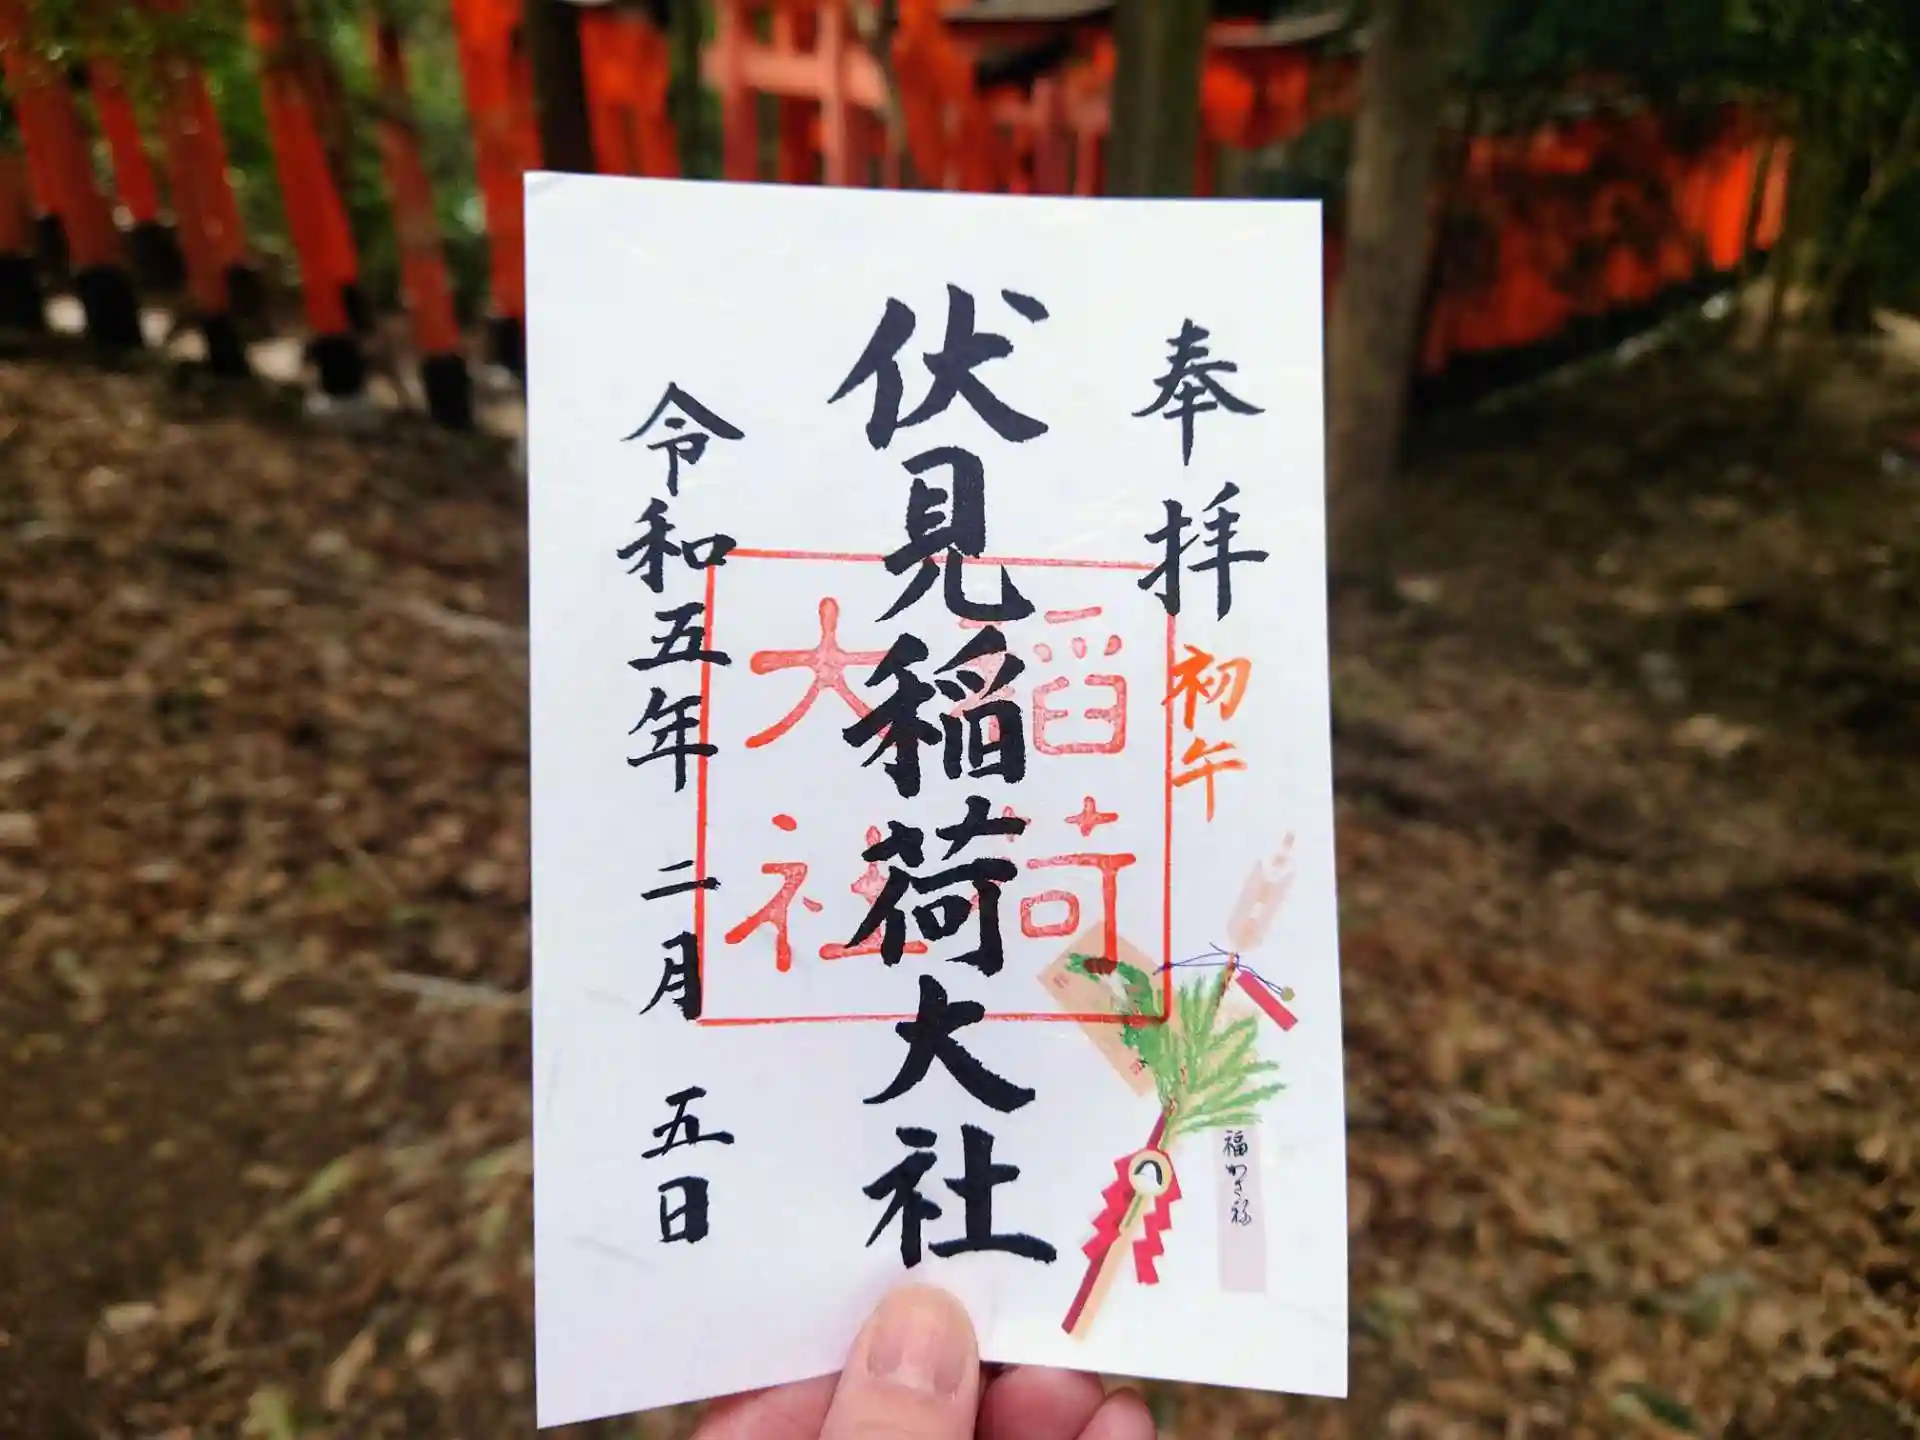 奉拝
初午
福かさね
伏見稲荷大社
稲荷
大社
令和五年二月五日